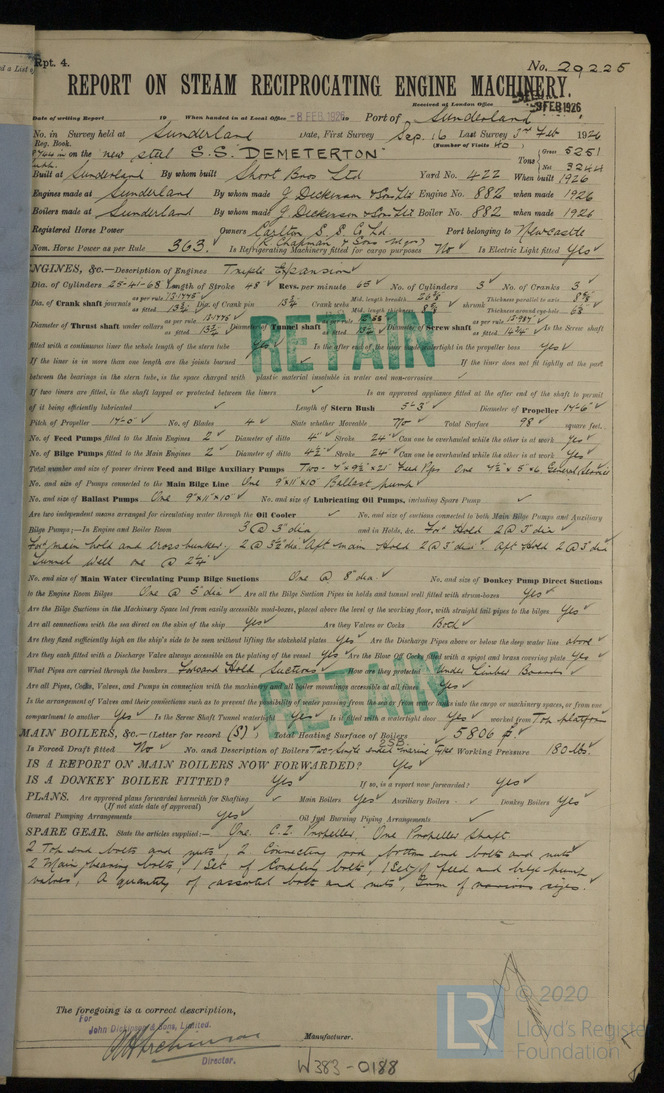 Rpt. 4.
No. 29225
REPORT ON STEAM RECIPROCATING ENGINE MACHINERY.
Received at London Office
9 FEB 1926
Date of writing Report 19 When handed in at Local Office -8 FEB. 1926 19 Port of Sunderland
No. in Survey held at Sunderland Date, First Survey Sep. 16 Last Survey 3rd Feb 1926
Reg. Book. (Number of Visits 40)
on the new steel S.S. DEMETERTON Tons Gross 5251 Net 3244
Built at Sunderland By whom built Short Bros Ltd Yard No. 422 When built 1926
Engines made at Sunderland By whom made J Dickinson & Sons Ltd Engine No. 882 when made 1926
Boilers made at Sunderland By whom made J Dickinson & Sons Ltd Boiler No. 882 when made 1926
Registered Horse Power Owners Carlton S. S. Co Ltd Port belonging to Newcastle
(R. Chapman & Sons Mgrs)
Nom. Horse Power as per Rule 363. Is Refrigerating Machinery fitted for cargo purposes No Is Electric Light fitted Yes
ENGINES, &c.—Description of Engines Triple Expansion
Dia. of Cylinders 25-41-68 Length of Stroke 48 Revs. per minute 65 No. of Cylinders 3 No. of Cranks 3
Dia. of Crank shaft journals as per rule as fitted 13¾ Dia. of Crank pin 13¾ Crank webs Mid. length breadth Mid. length thickness shrunk Thickness parallel to axis Thickness around eye-hole
Diameter of Thrust shaft under collars as per rule as fitted 13¾ Diameter of Tunnel shaft as fitted Diameter of Screw shaft as per rule as fitted Is the Screw shaft
fitted with a continuous liner the whole length of the stern tube Yes Is the after end of the liner made watertight in the propeller boss Yes
If the liner is in more than one length are the joints burned If the liner does not fit tightly at the part
between the bearings in the stern tube, is the space charged with plastic material insoluble in water and non-corrosive
If two liners are fitted, is the shaft lapped or protected between the liners Is an approved appliance fitted at the after end of the shaft to permit
of it being efficiently lubricated Length of Stern Bush 5'-3" Diameter of Propeller 17'-6"
Pitch of Propeller 17'-0" No. of Blades 4 State whether Moveable No Total Surface 98 square feet.
No. of Feed Pumps fitted to the Main Engines 2 Diameter of ditto 4" Stroke 24" Can one be overhauled while the other is at work Yes
No. of Bilge Pumps fitted to the Main Engines 2 Diameter of ditto 4½" Stroke 24" Can one be overhauled while the other is at work Yes
Total number and size of power driven Feed and Bilge Auxiliary Pumps Two - 7"x9½"x21" Feed Pps One 7½"x5"x6" General Service
No. and size of Pumps connected to the Main Bilge Line One 9"x11"x10" Ballast pump
No. and size of Ballast Pumps One 9"x11"x10" No. and size of Lubricating Oil Pumps, including Spare Pump
Are two independent means arranged for circulating water through the Oil Cooler No. and size of suctions connected to both Main Bilge Pumps and Auxiliary
Bilge Pumps;—In Engine and Boiler Room 3 @ 3" dia and in Holds, &c. For'd Hold 2 @ 3" dia
For'd main hold and cross bunker, 2 @ 3½" dia. Aft main Hold 2 @ 3" dia. Aft Hold 2 @ 3" dia
Tunnel well one @ 2¼"
No. and size of Main Water Circulating Pump Bilge Suctions One @ 8" dia No. and size of Donkey Pump Direct Suctions
to the Engine Room Bilges One @ 5" dia Are all the Bilge Suction Pipes in holds and tunnel well fitted with strum-boxes Yes
Are the Bilge Suctions in the Machinery Space led from easily accessible mud-boxes, placed above the level of the working floor, with straight tail pipes to the bilges Yes
Are all connections with the sea direct on the skin of the ship Yes Are they Valves or Cocks Both
Are they fixed sufficiently high on the ship's side to be seen without lifting the stokehold plates Yes Are the Discharge Pipes above or below the deep water line above
Are they each fitted with a Discharge Valve always accessible on the plating of the vessel Yes Are the Blow Off Cocks fitted with a spigot and brass covering plate Yes
What Pipes are carried through the bunkers Forward Hold Suctions How are they protected Under Limber Boards
Are all Pipes, Cocks, Valves, and Pumps in connection with the machinery and all boiler mountings accessible at all times Yes
Is the arrangement of Valves and their connections such as to prevent the possibility of water passing from the sea or from into the cargo or machinery spaces, or from one
compartment to another Yes Is the Screw Shaft Tunnel watertight Yes Is it fitted with a watertight door Yes worked from Top platform
RETAIN
RETAIN
MAIN BOILERS, &c.—(Letter for record (S)) Total Heating Surface of Boilers 5806
2SB
Is Forced Draft fitted No No. and Description of Boilers Two-Single ended marine type Working Pressure 180 lbs.
IS A REPORT ON MAIN BOILERS NOW FORWARDED? Yes
IS A DONKEY BOILER FITTED? Yes If so, is a report now forwarded? Yes
PLANS. Are approved plans forwarded herewith for Shafting Main Boilers Yes Auxiliary Boilers Donkey Boilers Yes
(If not state date of approval)
General Pumping Arrangements Yes Oil fuel Burning Piping Arrangements
SPARE GEAR. State the articles supplied:— One C.I. Propeller, One Propeller Shaft
2 Top end bolts and nuts, 2 Connecting rod bottom end bolts and nuts
2 Main bearing bolts, 1 Set of Coupling bolts, 1 Set of feed and bilge pump
valves, A quantity of assorted bolts and nuts, Iron of various sizes.
The foregoing is a correct description,
For
John Dickinson & Sons, Limited.
Manufacturer.
Director.
W383-0188
LR
© 2020
Lloyd's Register
Foundation